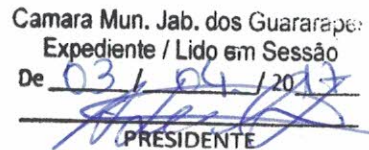 Camara Mun. Jab. dos Guararapes
Expediente / Lido em Sessão
De 03 / 04 / 2017
PRESIDENTE